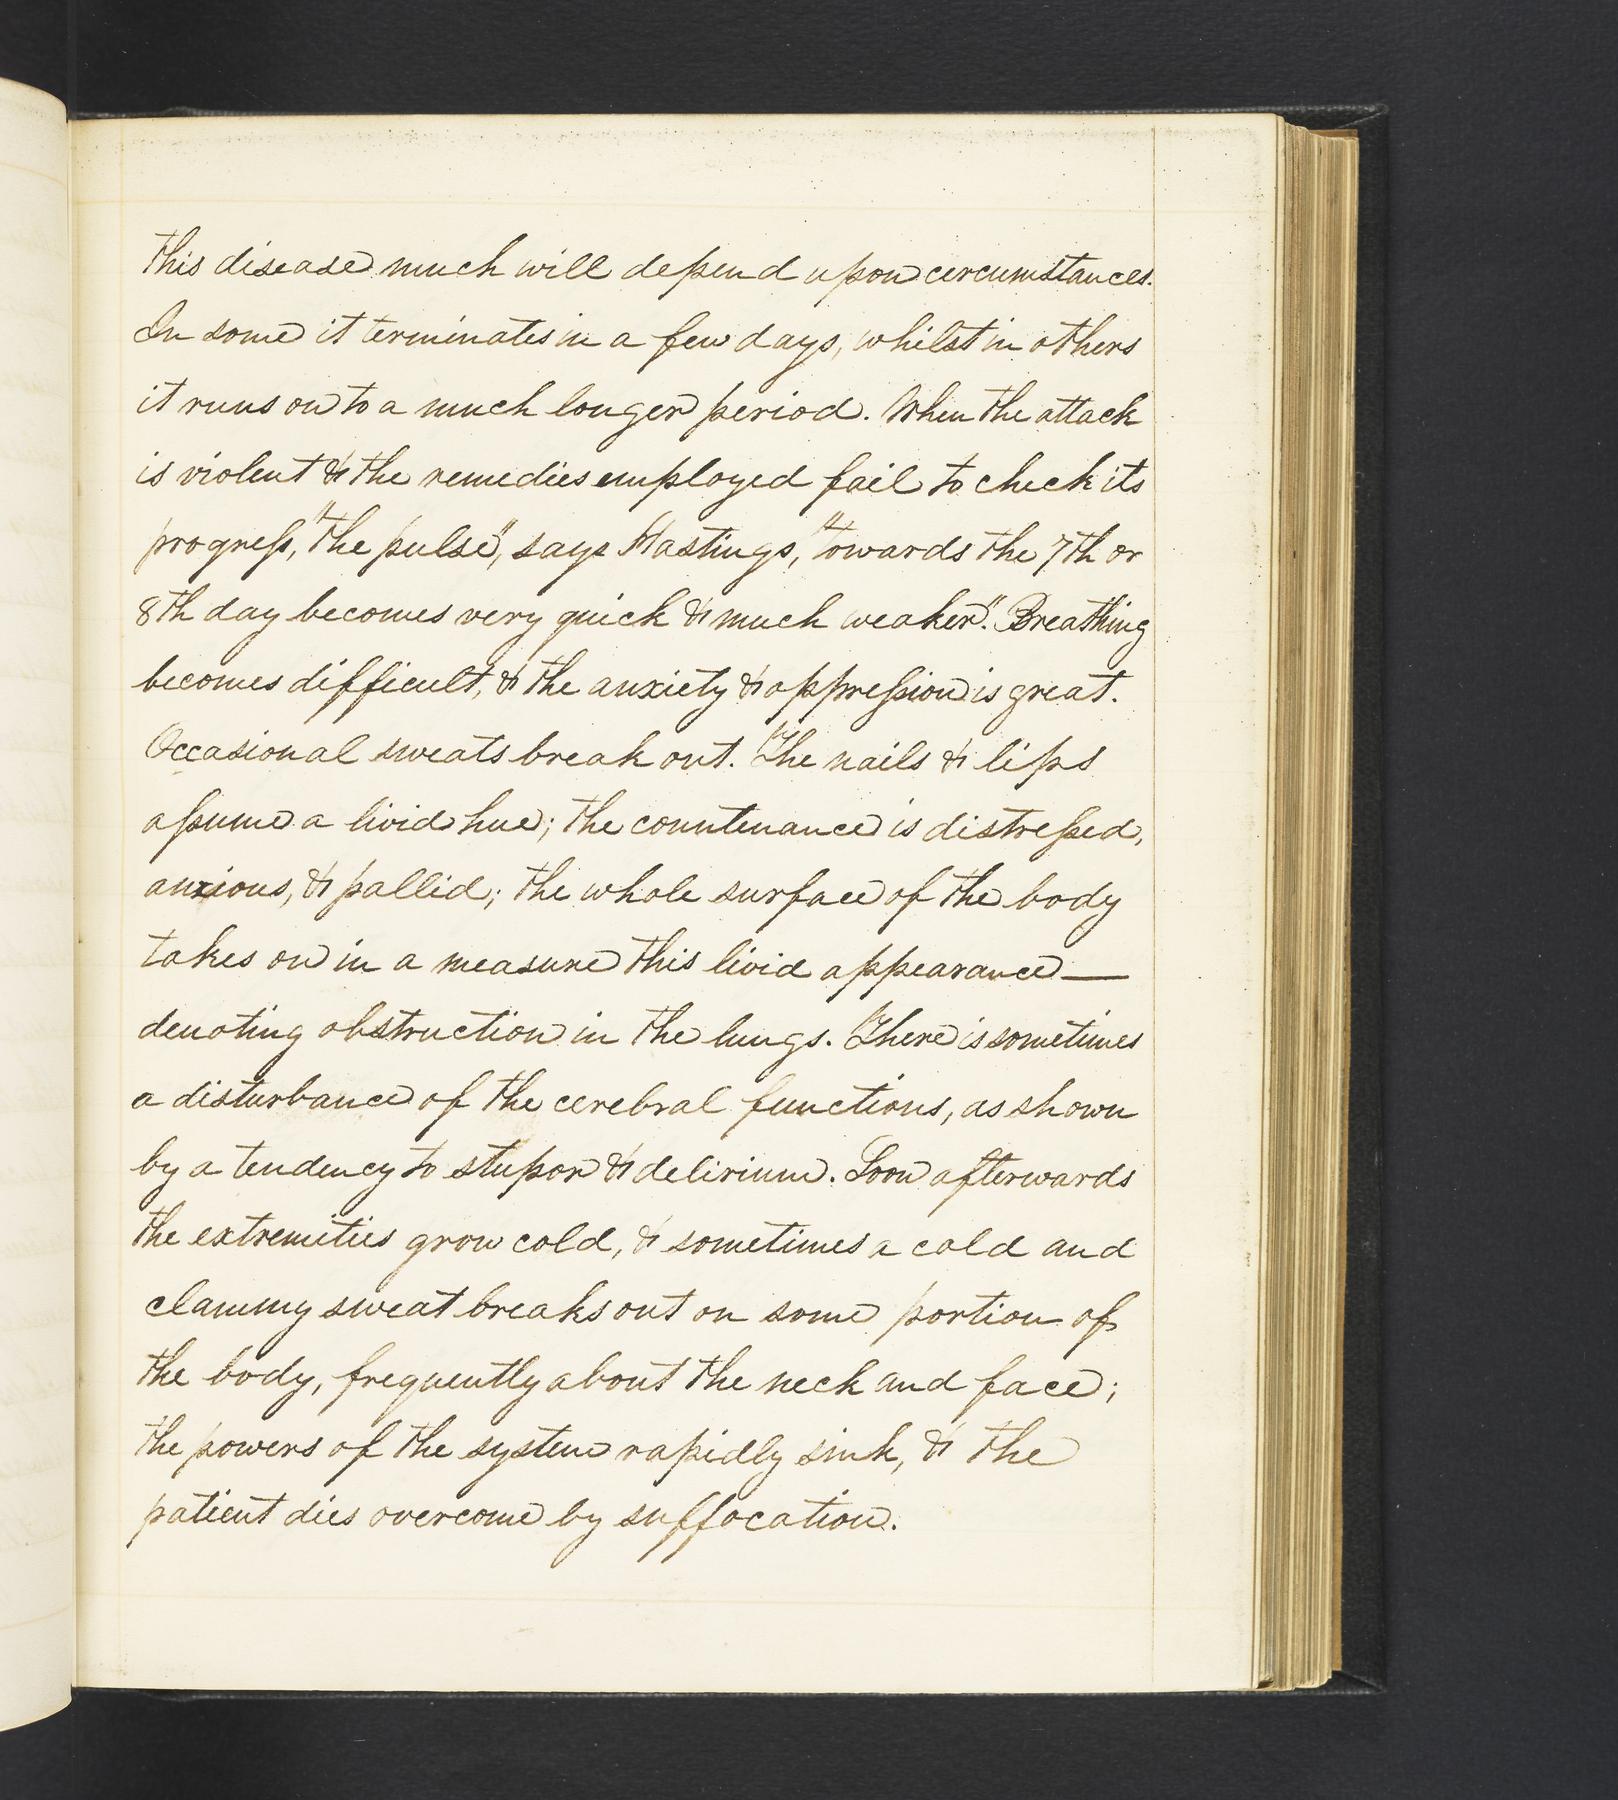 this disease much will depend upon circumstances.
In some it terminates in a few days, whilst in others
it runs on to a much longer period. When the attack
is violent & the remedies employed fail to check its
progreſs, "the pulse", says Hastings, "towards the 7th or
8th day becomes very quick & much weaker". Breathing
becomes difficult, & the anxiety & oppreſsion is great.
Occasional sweats break out. The nails & lips
aſsume a livid hue; the countenance is distreſsed,
anxious, & pallid; the whole surface of the body
takes on in a measure this livid appearance —
denoting obstruction in the lungs. There is sometimes
a disturbance of the cerebral functions, as shown
by a tendency to stupor & delirium. Soon afterwards
the extremities grow cold, & sometimes a cold and
clammy sweat breaks out on some portion of
the body, frequently about the neck and face;
the powers of the system rapidly sink, & the
patient dies overcome by suffocation.